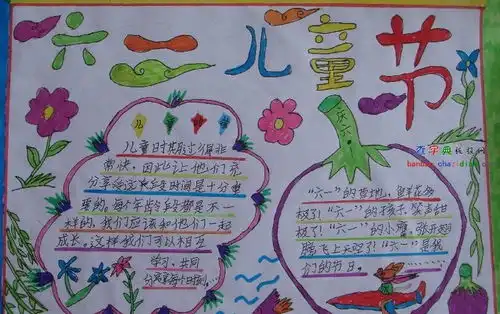 六一儿童节
庆六一
儿童时期过得非
常快,因此让他们充
分享受这个阶段时间是十分重
要的,每个年龄段都是不一
样的,我们应该和他们一起
成长。这样我们可以相互
学习,共同
分享每个时刻…
"六一"的草地,鲜花多
极了!"六一"的孩子,笑声甜
极了!"六一"的小鹰,张开翅
膀飞上天啦了!"六一"是我
们的节日。
查字典 板报网